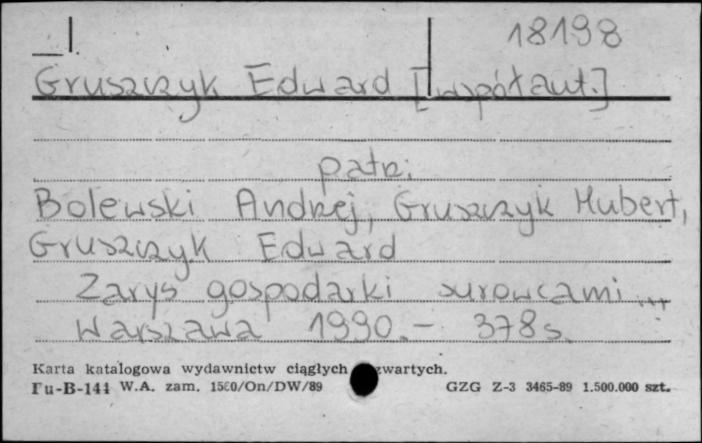 18198
Gruszczyk Edward [współaut.]
patrz:
Bolewski Andrzej, Gruszczyk Hubert,
Gruszczyk Edward
Zarys gospodarki surowcami ...
Warszawa 1990.- 378 s.
Karta katalogowa wydawnictw ciągłych zwartych.
Pu-B-141 W.A. zam. 1580/On/DW/89 GZG Z-3 3465-89 1.500.000 szt.